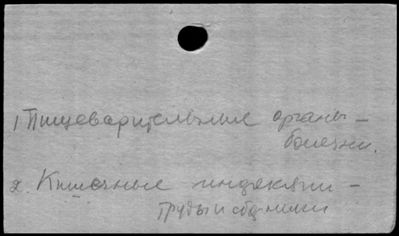 1 Пищеварительные органы –
болезни.
2. Кишечные инфекции –
труды и сборники